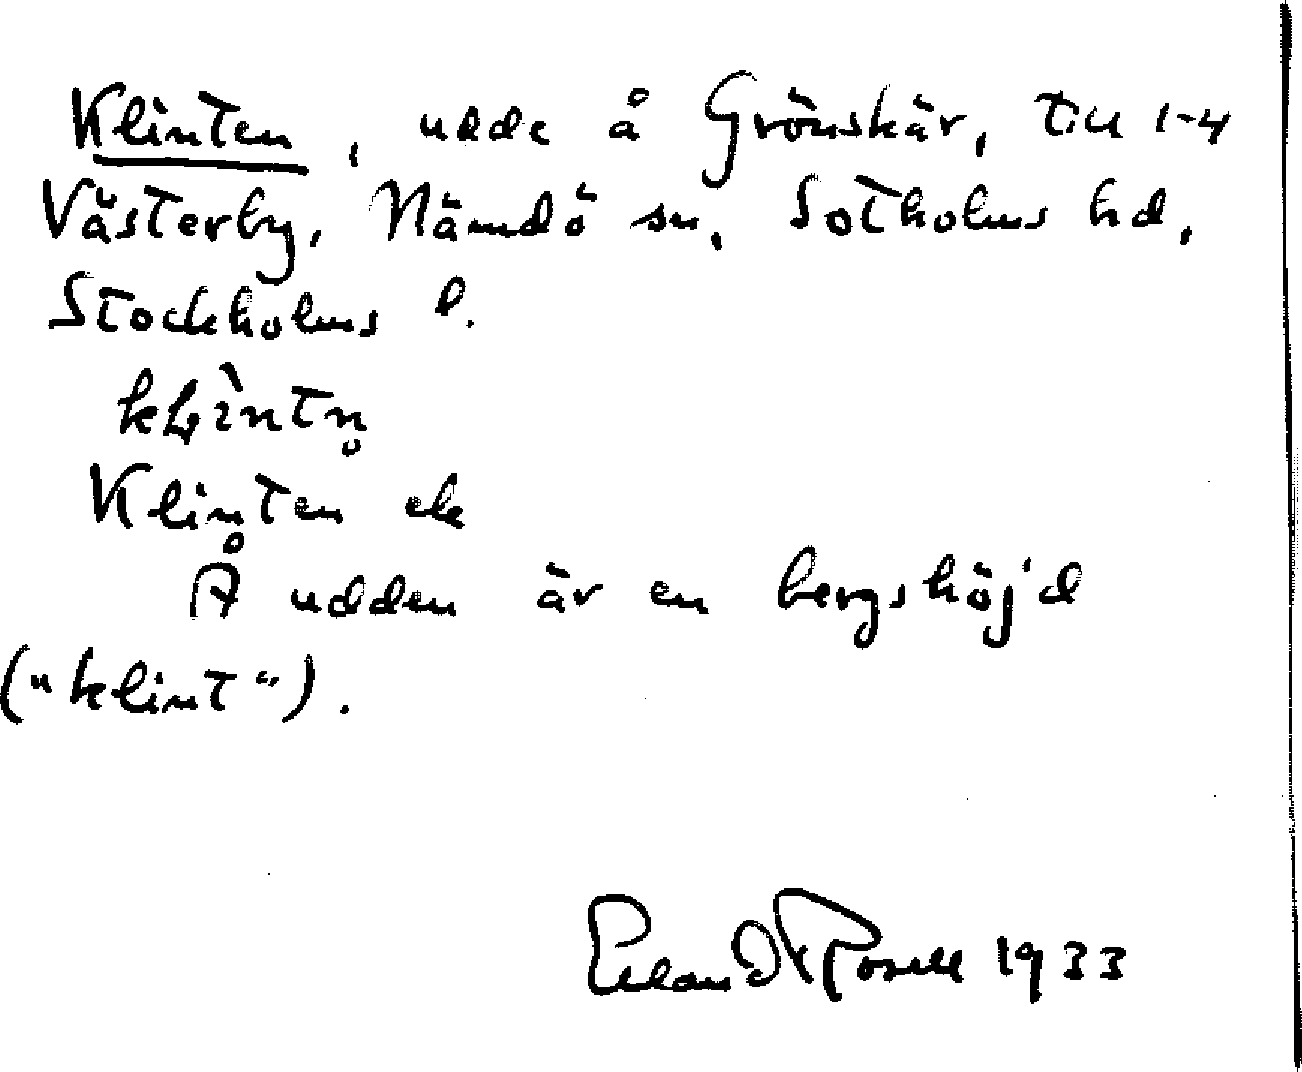 Klinten, udde å Grönskär, till 1-4
Västerby, Nämdö sn, Sotholms hd,
Stockholms l.
klìntn̥
Klinten ek
Å udden är en bergshöjd
("klint").
Erland Rosell 1933